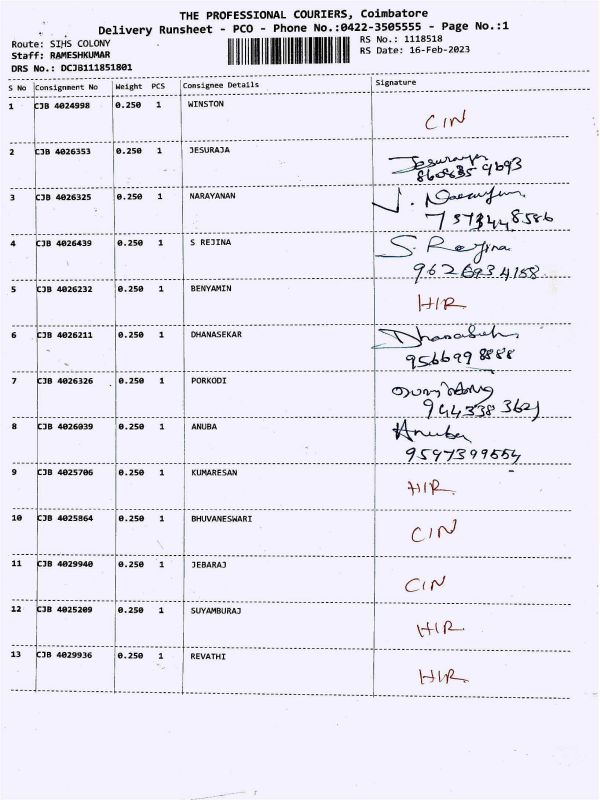 THE PROFESSIONAL COURIERS, Coimbatore
Delivery Runsheet - PCO - Phone No.:0422-3505555 - Page No.:1
Route: SIHS COLONY
RS No.: 1118518
Staff: RAMESHKUMAR
RS Date: 16-Feb-2023
DRS No.: DCJB111851801
S No Consignment No Weight PCS Consignee Details Signature
1 CJB 4024998 0.250 1 WINSTON
CIN
2 CJB 4026353 0.250 1 JESURAJA
Jesuraja
3 CJB 4026325 0.250 1 NARAYANAN
J. Narayanan
7373448586
4 CJB 4026439 0.250 1 S REJINA
S. Rejina
9626934158
5 CJB 4026232 0.250 1 BENYAMIN
HIR
6 CJB 4026211 0.250 1 DHANASEKAR
9566998888
7 CJB 4026326 0.250 1 PORKODI
9443383621
8 CJB 4026039 0.250 1 ANUBA
Anuba
9597399554
9 CJB 4025706 0.250 1 KUMARESAN
HIR
10 CJB 4025864 0.250 1 BHUVANESWARI
CIN
11 CJB 4029940 0.250 1 JEBARAJ
CIN
12 CJB 4025209 0.250 1 SUYAMBURAJ
HIR
13 CJB 4029936 0.250 1 REVATHI
HIR